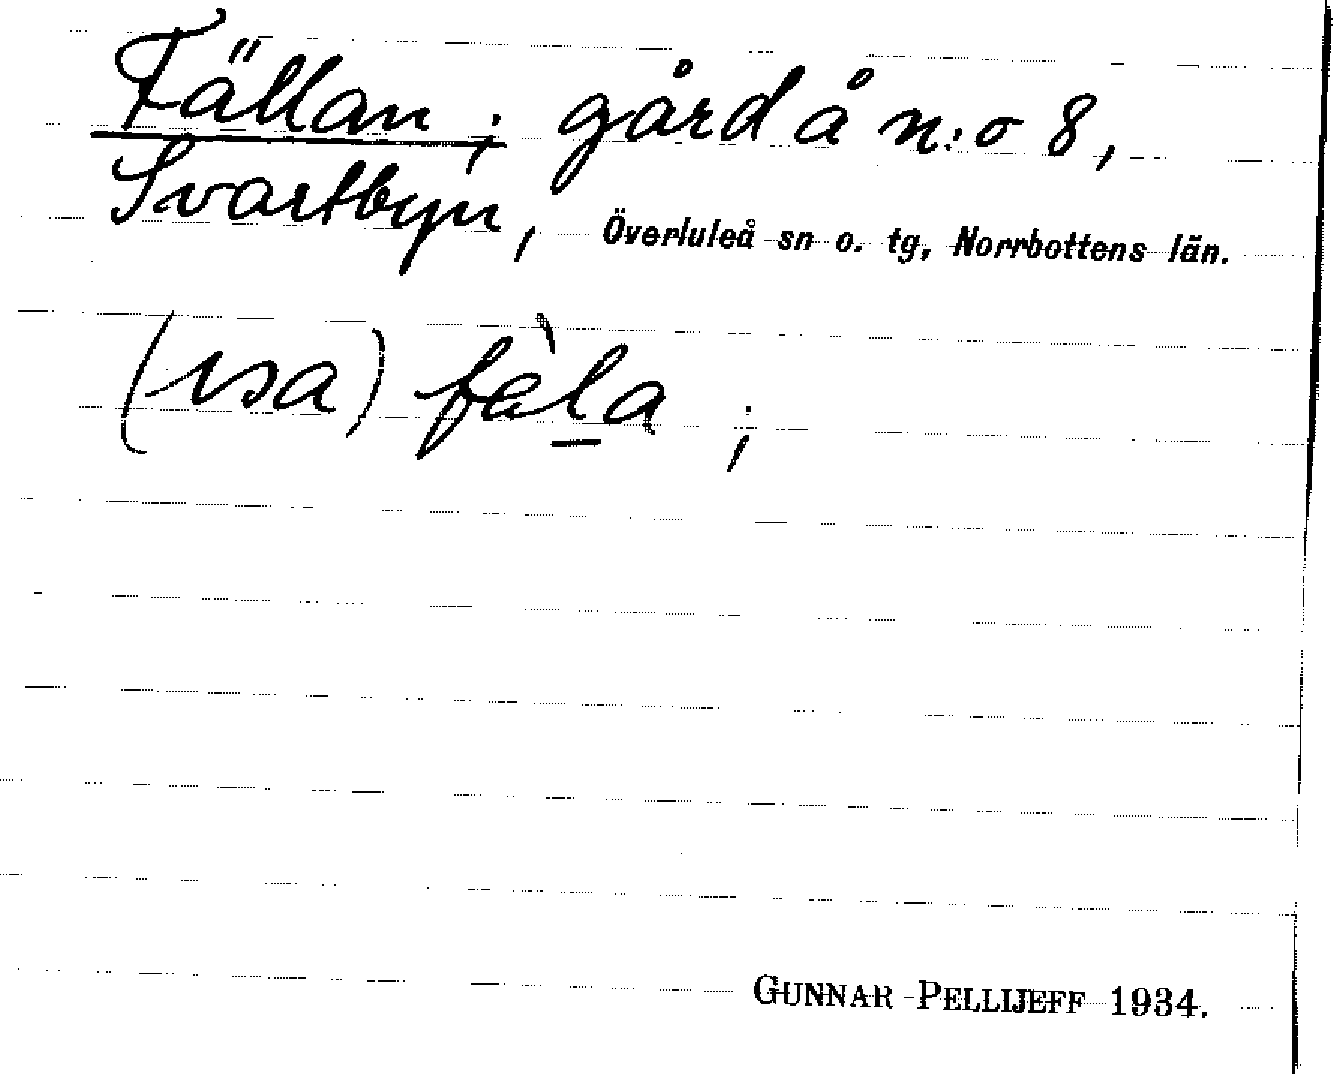 Fällan; gård å n:o 8,
Svartbyn, Överluleå sn o. tg, Norrbottens län.
(isa) fèla ;
GUNNAR PELLIJEFF 1934.